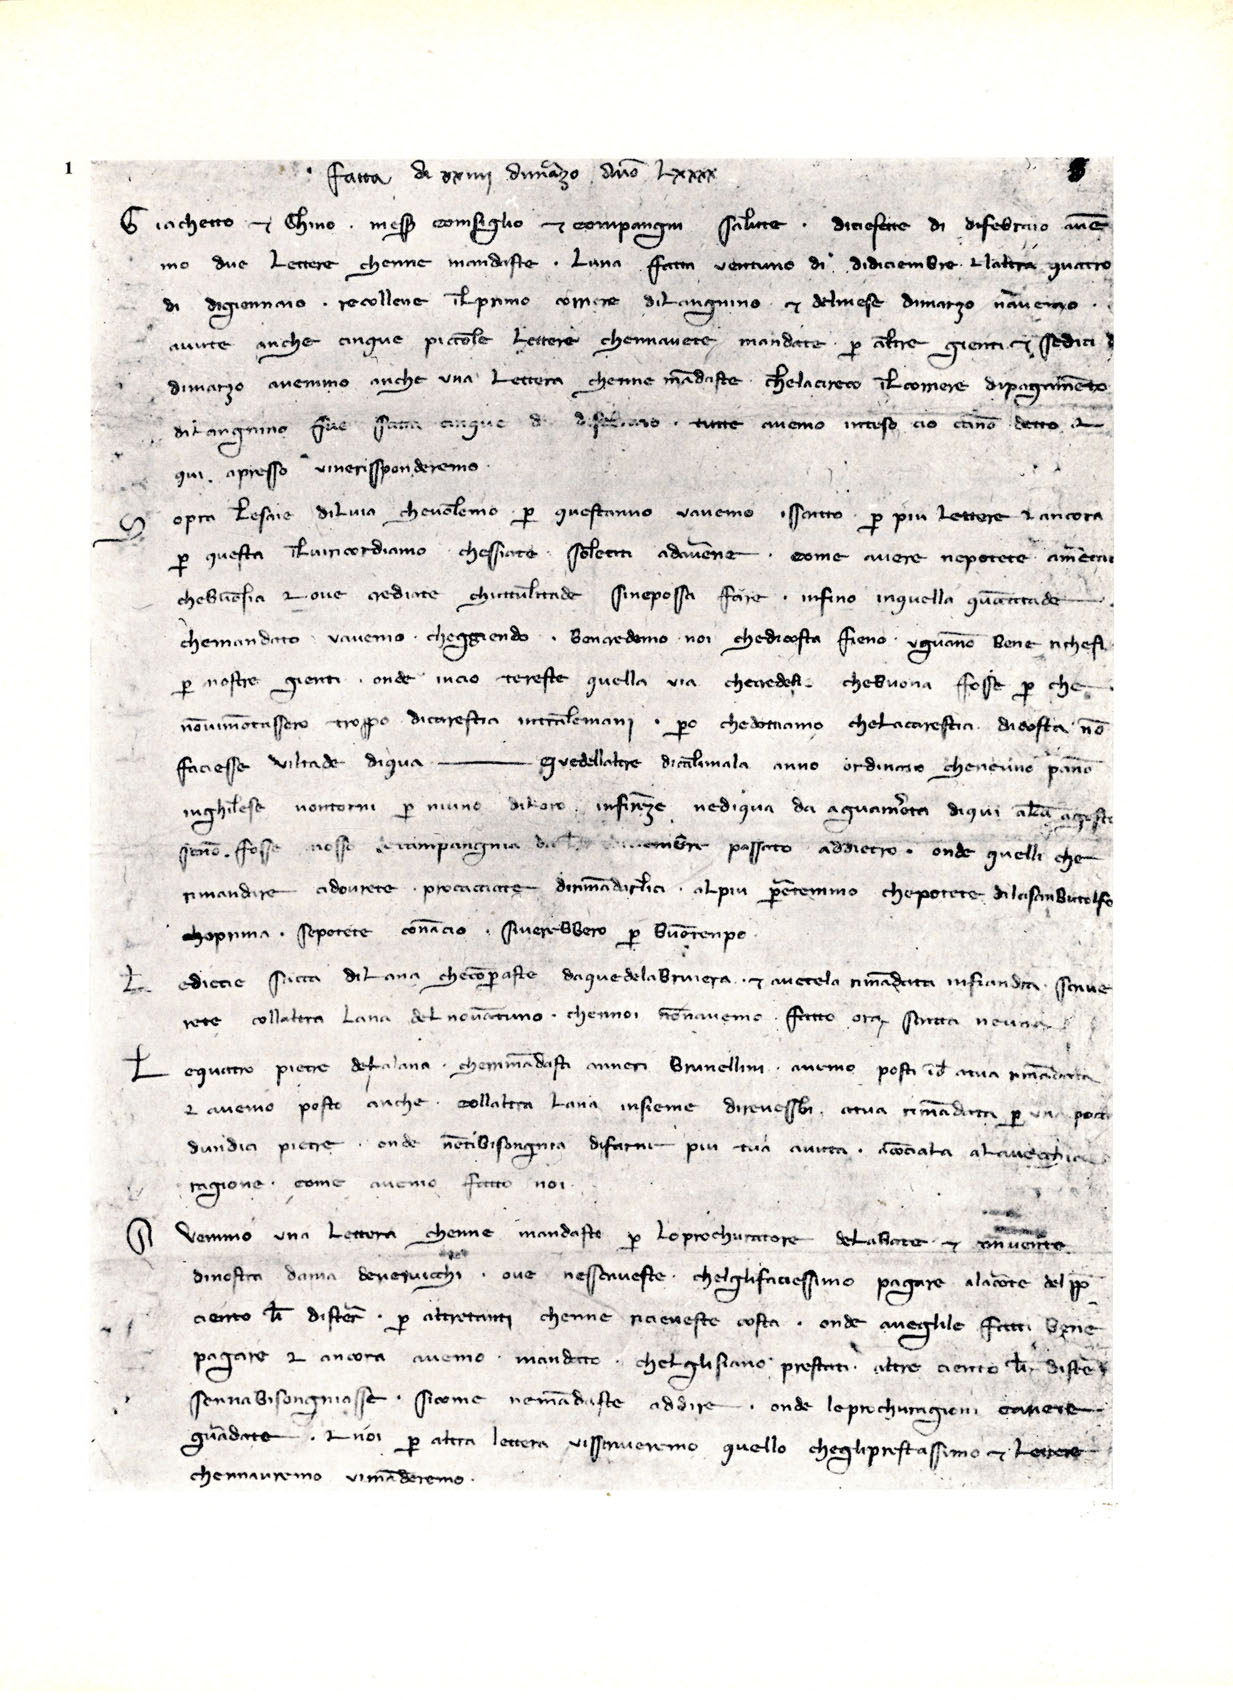 1
fatta dì xxiiij di março anno Lxxxx
Giachetto ⁊ Ghino. messer Consiglio ⁊ compangni salute. diciesette dì di febraio ave
mo due lettere chenne mandaste. luna fatta ventuno dì didiciembre ⁊ laltra quatro
dì digiennaio. recollene ilprimo corriere dilangnino ⁊ delmese dimarzo navemo
avute anche cinque picciole lettere chennavete mandate per altre gienti. ⁊ sedici d
dimarzo avemmo anche una lettera chenne mandaste chelacireco ilcorriere dipagamento
dilangnino fue fatta cinque dì di febraio. tutte avemo inteso ciò cànno detto ⁊
qui. apresso vinerissponderemo.
Sopra lesaie dilvia chevolemo per questanno vavemo isscritto per più lettere ⁊ ancora
per questa ilviricordiamo chessiate soleciti adaverne. come avere nepotete
chebuonsia ⁊ ove crediate chinttulttade sineposssa fare. infino inquella quantitade
chemandato vavemo cheggiendo. bencredemo noi chedicosta sieno uguanno bene richesti
per nostre gienti. onde inciò tereste quella via checredeste chebuona fosse per che
nonvimontassero troppo dicarestia intralemani. però chedottiamo chelacarestia dicosta non
faciesse viltade diqua ——— Quedellaltre ditalimala anno ordinato cheneuno panno
inghilese nontorni per niuno diloro infirenze nediqua da aguamorta diqui akalen agosto
senon. fosse mosso dicampangnia dikalen novembre passato addietro. onde quelli che
rimandare adovrete procacciate dirimandarlici. alpiù pertemmo chepotete
choprima. sepotete conacio. siverebbero per buontempo.
Lediecie sacca dilana checomperaste daquedelabruiera. ⁊ avetela rimandata infiandra. scrive
rete collaltra lana del novantuno. chennoi nonnavemo. fatto ora scritta neuna
Lequatro pietre delalana. cherimandasti anneri brunellini. avemo posti
⁊ avemo posto anche. collaltra lana insieme atua rimandata per una posta
dundici pietre. onde nontibisongnia difarne più tua avuta. aconciala alavecchia
ragione. come avemo fatto noi.
Avemmo una lettera chenne mandaste per loprochuratore delabate ⁊
dinostra dama overvicchi. ove nesscriveste. chelglifaciessimo pagare alacorte del papa
ciento lire disterlini. per altretanti chenne ricieveste costa. onde aveglile fatti bene
pagare ⁊ ancora avemo mandato. chelglisiano prestati. altre ciento lire disterlini
sennabisongniasse. sicome nemandaste addire. onde leprochuragioni
guardate. ⁊ noi per altra lettera visscriveremo quello chegliprestassimo ⁊ lettere
chennavremo vimanderemo.